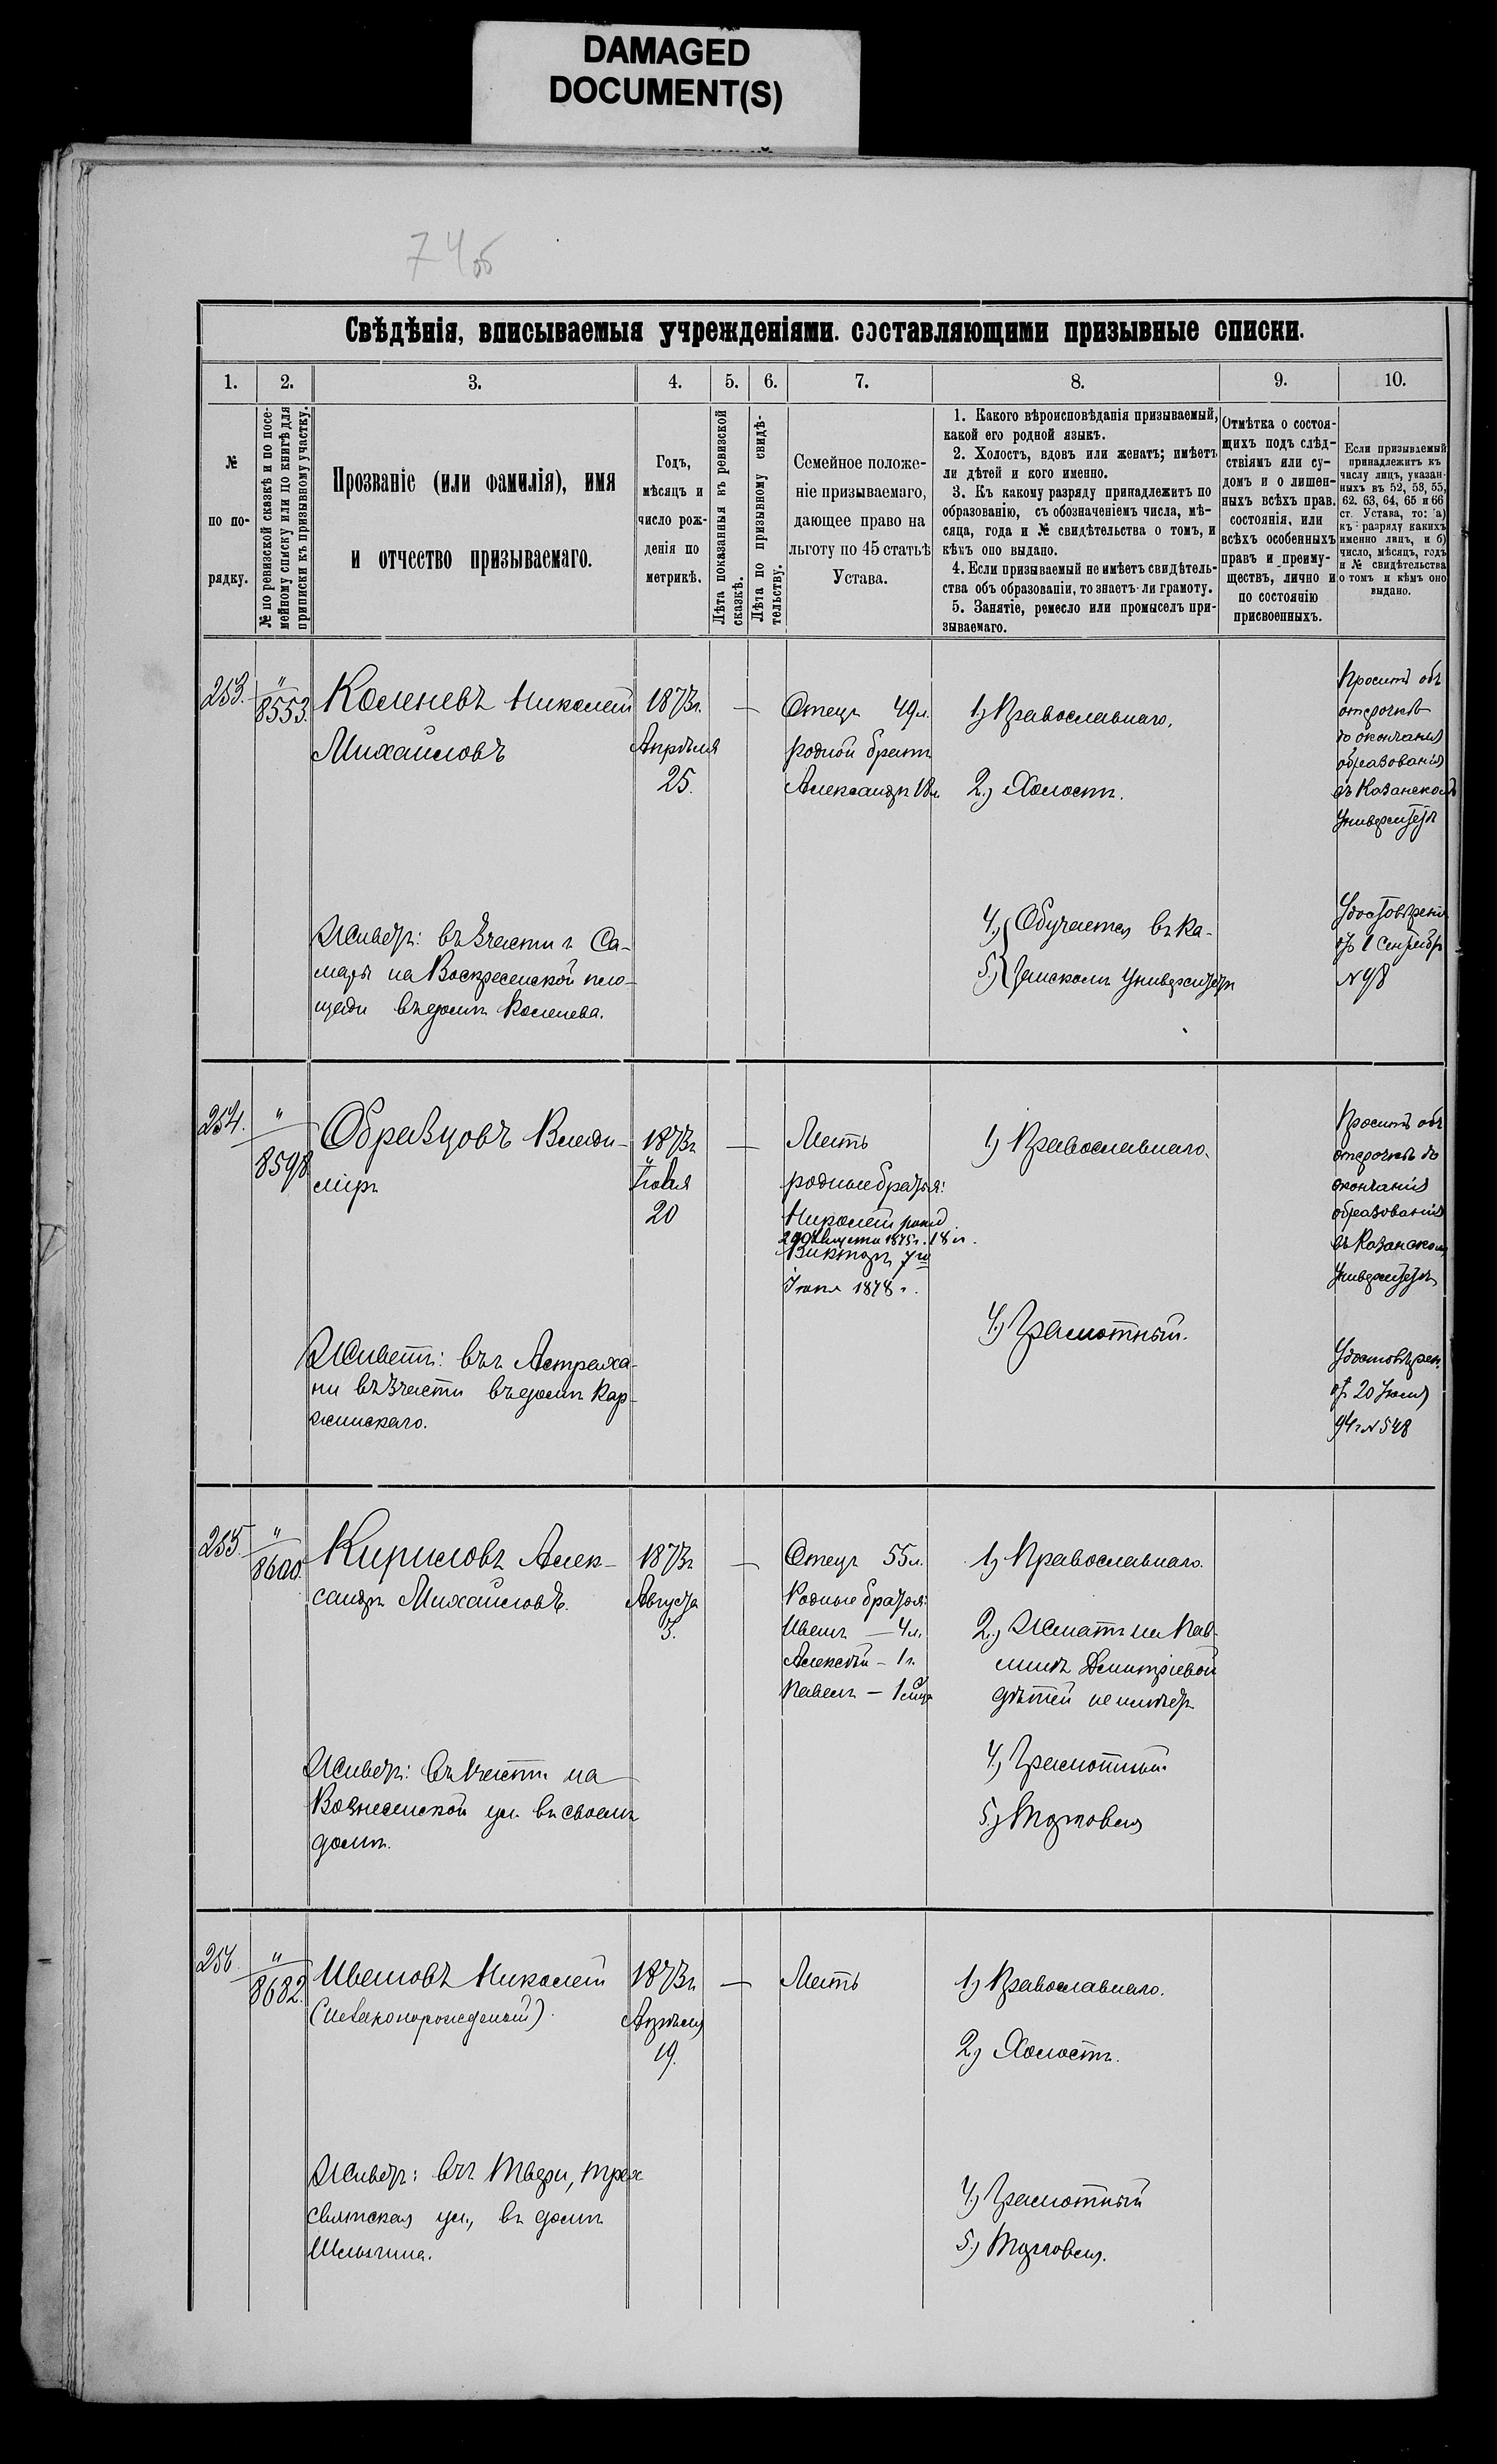 DAMAGED
DOCUMENT(S)
74об
Свѣдѣнія, вписываемыя учрежденіями, составляющими призывные списки.
1.
2.
3.
4.
5.
6.
7.
8.
9.
10.
№
по по-
рядку.
№ по ревизской сказкѣ и по посе-
мейному списку или по книгѣ для
приписки къ призывному участку.
Прозваніе (или фамилія), имя
и отчество призываемаго.
Годъ,
мѣсяцъ и
число рож-
денія по
метрикѣ.
Лѣта показанныя къ ревизской
сказкѣ.
Лѣта по призывному свидѣ-
тельству.
Семейное положе-
ніе призываемаго,
дающее право на
льготу по 45 статьѣ
Устава.
1. Какого вѣроисповѣданія призываемый,
какой его родной языкъ.
2. Холостъ, вдовъ или женатъ; имѣетъ
ли дѣтей и кого именно.
3. Къ какому разряду принадлежитъ по
образованію, съ обозначеніемъ числа, мѣ-
сяца, года и № свидѣтельства о томъ, и
кѣмъ оно выдано.
4. Если призываемый не имѣетъ свидѣтель-
ства объ образованіи, то знаетъ-ли грамоту.
5. Занятіе, ремесло или промыселъ при-
зываемаго.
Отмѣтка о состоя-
щихъ подъ слѣд-
ствіямъ или су-
домъ и о лишен-
ныхъ всѣхъ прав.
состоянія, или
всѣхъ особенныхъ
правъ и преиму-
ществъ, лично и
по состоянію
присвоенныхъ.
Если призываемый
принадлежитъ къ
числу лицъ, указан-
ныхъ въ 52, 53, 55,
62. 63, 64, 65 и 66
ст. Устава, то: а)
къ разряду какихъ
именно лицъ, и б)
число, мѣсяцъ, годъ
и № свидѣтельства
о томъ и кѣмъ оно
выдано.
253.
"
8553.
Коленевъ Николай
Михайловъ
Живетъ: въ 3 части г. Са-
мары на Воскресенской пло-
щади въ домѣ Коленева.
1873 г.
Апрѣля
25.
—
Отецъ 49 л.
родной братъ
Александръ 18 л.
1) Православнаго.
2.) Холостъ.
4.) Обучается въ Ка-
5.) занскомъ Университетѣ
Проситъ объ
отсрочкѣ
до окончанія
образованія
въ Казанскомъ
Университетѣ
Удостовѣреніе
отъ 1 Сентября
№ 98
254.
"
8598
Образцовъ Влади-
міръ
Живетъ: въ г. Астраха-
ни въ 3 части въ домѣ Кар-
жинскаго.
1873 г.
Іюля
20
—
Мать
родные братья:
Николай ро
29 Августа 1875 г. 18 л.
Викторъ 7го
Іюня 1878 г.
1) Православнаго.
4.) Грамотный.
Проситъ объ
отсрочкѣ до
окончанія
образованія
въ Казанскомъ
Университетѣ
Удостовѣрен.
отъ 20 Іюля
94 г. № 548
255.
"
8600.
Кириловъ Алек-
сандръ Михайловъ.
Живетъ: въ 1 части на
Вознесенской ул. въ своемъ
домѣ.
1873 г.
Августа
3.
—
Отецъ 55 л.
Родные братья:
Иванъ — 4 л.
Алексѣй — 1 г.
Павелъ — 1 мѣс.
1) Православнаго.
2.) Женатъ на
Дмитріевой
дѣтей не имѣетъ
4.) Грамотный.
5.) Торговля
256.
"
8682.
Ивановъ Николай
(незаконорожденый).
Живетъ: въ г. Твери, Трех
святская ул., въ домѣ
1873 г.
Апрѣля
19.
—
Мать
1) Православнаго.
2.) Холостъ.
4.) Грамотный
5.) Торговля.